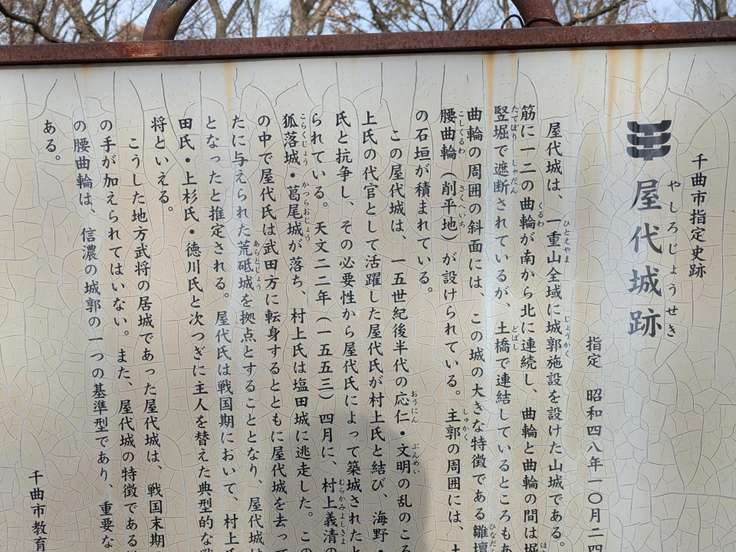 千曲市指定史跡
やしろじょうせき
屋代城跡
指定 昭和四八年一〇月二四
屋代城は、一重山全域に城郭施設を設けた山城である。
筋に一二の曲輪が南から北に連続し、曲輪と曲輪の間は堀
竪堀で遮断されているが、土橋で連結しているところもあ
曲輪の周囲の斜面には、この城の大きな特徴である雛壇
腰曲輪(削平地)が設けられている。主郭の周囲には、土
の石垣が積まれている。
この屋代城は、一五世紀後半代の応仁・文明の乱のころ
上氏の代官として活躍した屋代氏が村上氏と結び、海野・
氏と抗争し、その必要性から屋代氏によって築城されたと
られている。天文二二年(一五五三)四月に、村上義清の
狐落城・葛尾城が落ち、村上氏は塩田城に逃走した。この
の中で屋代氏は武田方に転身するとともに屋代城を去って
たに与えられた荒砥城を拠点とすることとなり、屋代城は
となったと推定される。屋代氏は戦国期において、村上氏
田氏・上杉氏・徳川氏と次つぎに主人を替えた典型的な戦
将といえる。
こうした地方武将の居城であった屋代城は、戦国末期
の手が加えられてはいない。また、屋代城の特徴である
の腰曲輪は、信濃の城郭の一つの基準型であり、重要な
ある。
千曲市教育